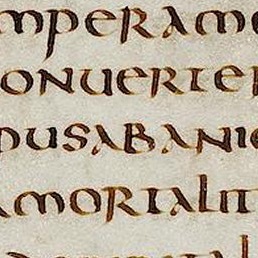 imperamo
onuerter
pusabanie
amortalit